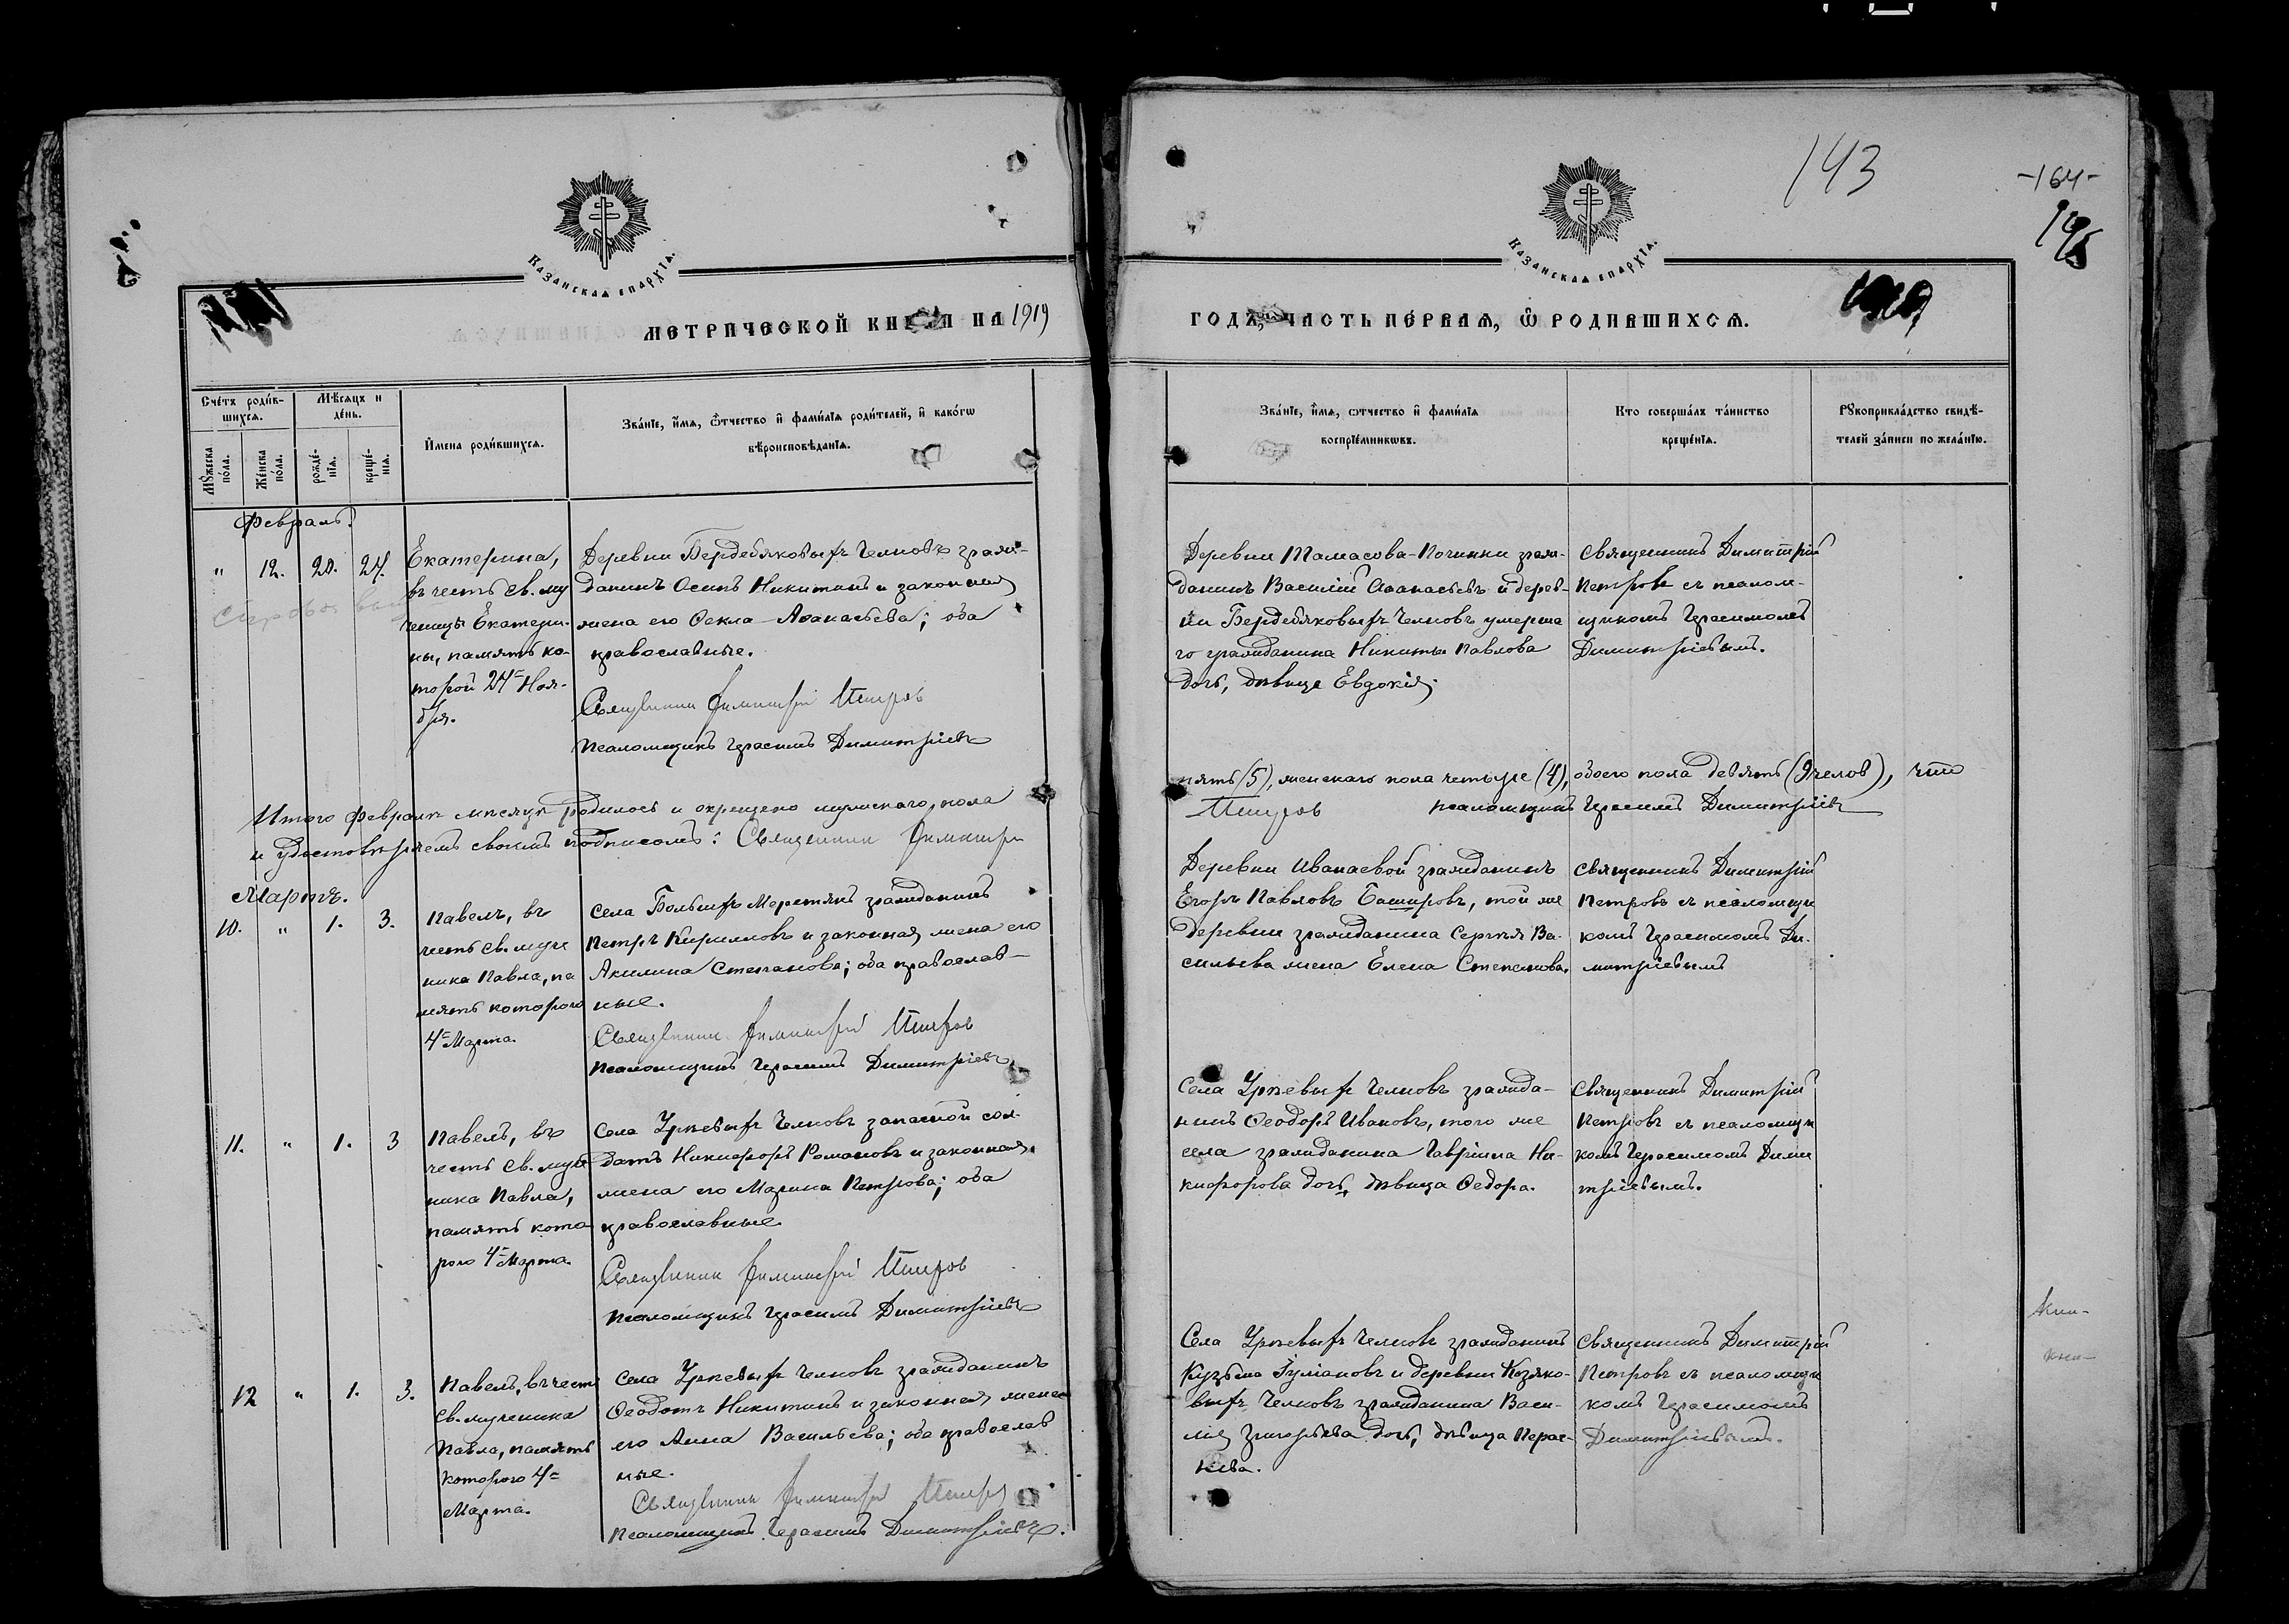 143
-164-
Казанская епархїя.
Казанская епархїя.
МЕТРИЧЕСКОЙ КНИГИ НА 1919
ГОДЪ, ЧАСТЬ ПЕ́РВАЯ, Ѽ РОДИВШИХСѦ.
Сче́тъ роди́в-
шихсѧ.
Мѣ́сѧцъ и
де́нь.
Мꙋ́жеска
по́ла.
Же́нска
по́ла.
рожде́-
нїѧ.
креще́-
нїѧ.
И҆мена роди́вшихсѧ.
Зва́нїе, и҆́мѧ, ѻ҆́тчество и҆ фами́лїѧ роди́телей, и҆ како́гѡ
вѣроисповѣ́данїѧ.
Зва́нїе, и҆́мѧ, ѻтчество и҆ фами́лїѧ
воспрїе́мникѡвъ.
Кто соверша́лъ та́инство
креще́нїѧ.
Рꙋкоприкла́дство свидѣ́-
телей за́писи по жела́нїю.
Февраль.
" 12. 20. 24.
Екатерина,
въ честь св. му
ченицы Екатери-
ны, память ко-
торой 24го Ноя-
бря.
Деревни Бердебяковыхъ Челновъ граж-
данинъ Осипъ Никитинъ и законная
жена его Ѳекла Аѳанасьева; оба
православные.
Священникъ Димитрій Петровъ
Псаломщикъ Герасимъ Димитріевъ
Деревни Тамасова-Починки граж-
данинъ Василій Аѳанасьевъ и дерев-
ни Бердебяковыхъ Челновъ умерша
го гражданина Никиты Павлова
дочь, дѣвица Евдокія.
Священникъ Димитрій
Петровъ съ псалом-
щикомъ Герасимомъ
Димитріевымъ.
Итого февралѣ мѣсяцѣ родилось и окрещено мужскаго пола
пять (5), женскаго пола четыре (4), обоего пола девять (9 челов), что
и удостовѣряемъ своимъ подписомъ: Священникъ Димитрій
Петровъ Псаломщикъ Герасимъ Димитріевъ
Мартъ.
10. " 1. 3.
Павелъ, въ
честь св. муче
ника Павла, па
мять котораго
4го Марта.
Села Большихъ Меретякъ гражданинъ
Петръ Кирилловъ и законная жена его
Акилина Степанова; оба православ-
ные.
Священникъ Димитрій Петровъ
Псаломщикъ Герасимъ Димитріевъ
Деревни Иванаевой гражданинъ
Егоръ Павловъ Башировъ, той же
деревни гражданина Сергѣя Ва-
сильева жена Елена Степанова.
Священникъ Димитрій
Петровъ съ псаломщи
комъ Герасимомъ Ди-
митріевымъ
11. " 1. 3
Павелъ, въ
честь св. муче
ника Павла,
память кото
раго 4го Марта.
Села Урѣевыхъ Челновъ запасной сол-
датъ Никифоръ Романовъ и законная
жена его Марина Петрова; оба
православные
Священникъ Димитрій Петровъ
Псаломщикъ Герасимъ Димитріевъ
Села Урѣевыхъ Челновъ гражда-
нинъ Ѳеодоръ Ивановъ, того же
села гражданина Гавріила Ни-
кифорова дочь, дѣвица Ѳедора.
Священникъ Димитрій
Петровъ съ псаломщи
комъ Герасимомъ Дими
тріевымъ.
12 " 1. 3.
Павелъ, въ честь
св. мученика
Павла, память
котораго 4го
Марта.
Села Урѣевыхъ Челновъ гражданинъ
Ѳеодотъ Никитинъ и законная жена
его Анна Васильева; оба православ
ные.
Священникъ Димитрій Петровъ
Псаломщикъ Герасимъ Димитріевъ.
Села Урѣевыхъ Челновъ гражданинъ
Кузьма Гуліановъ и деревни Козяко-
выхъ Челновъ гражданина Васи-
лія Григорьева дочь, дѣвица Парас-
кева.
Священникъ Димитрій
Петровъ съ псаломщи
комъ Герасимомъ
Димитріевымъ.